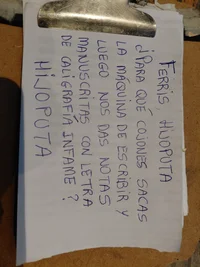 FERRIS HIJOPUTA
¿PARA QUÉ COJONES SACAS
LA MÁQUINA DE ESCRIBIR Y
LUEGO NOS DAS NOTAS
MANUSCRITAS CON LETRA
DE CALIGRAFÍA INFAME?
HIJOPUTA